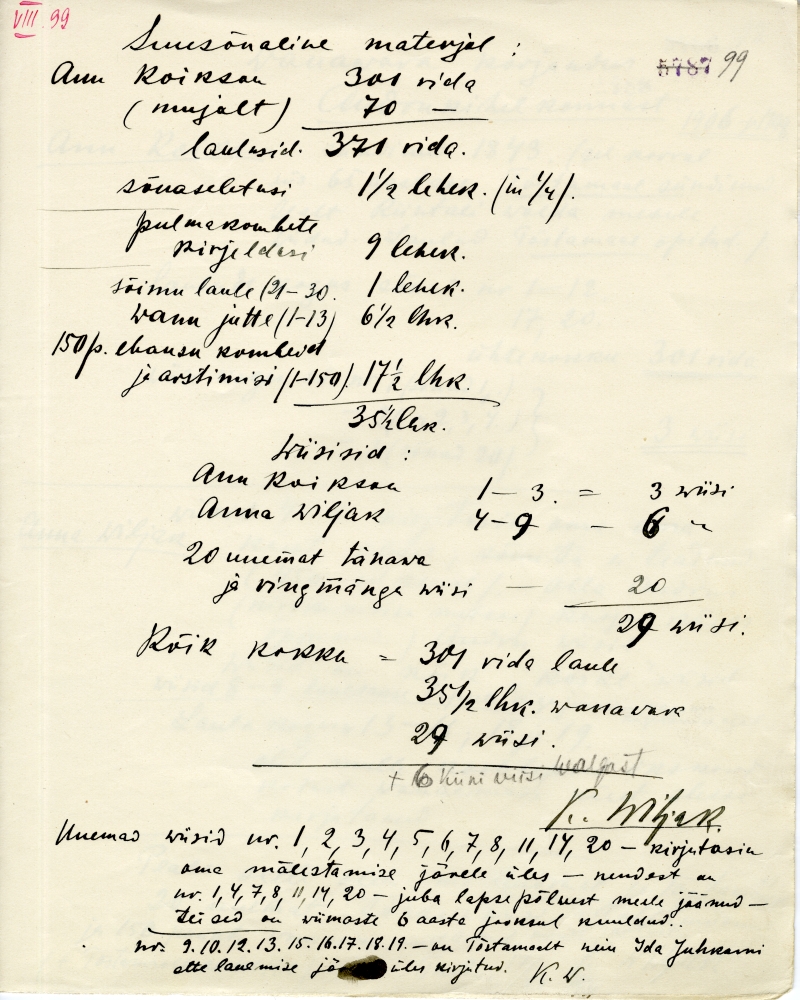 VIII 99
Suusõnaline materjal :
5787 99
Ann Koikson 301 rida
(mujalt) 70 —
laulusid. 371 rida.
sõnaseletusi 1½ lehek. (in ¼).
pulmakombete
kirjeldusi 9 lehek.
sõimu laule (21–30. 1 lehek.
wanu jutte (1–13) 6½ lhk.
150 p. ebausu kombeid
ja arstimisi (1–150). 17½ lhk.
35½ lhk.
Wiisisid :
Ann Koikson 1–3. = 3 wiisi
Anna Wiljak 4–9 — 6 "
20 uuemat tänawa
ja ringmängu wiisi — 20
29 wiisi.
Kõik kokku = 301 rida laule
35½ lhk. wanavara
29 wiisi.
+ 6 Küni wiisi Walgast
K. Wiljak.
Uuemad wiisid nr. 1, 2, 3, 4, 5, 6, 7, 8, 11, 14, 20 — kirjutasin
oma mälestamise järele üles — nendest on
nr. 1, 4, 7, 8, 11, 14, 20 — juba lapsepõlwest meele jäänud —
teised on wiimaste 6 aasta jooksul kuuldud..
nr. 9. 10. 12. 13. 15. 16. 17. 18. 19. — on Tõstamaalt neiu Ida Juhkami
ette laulmise üles kirjutud. K. W.